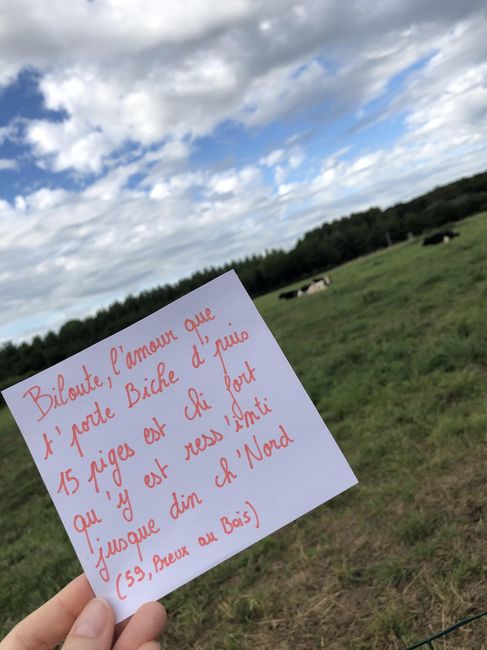 Biloute, l'amour que
t' porte Biche d'puis
15 piges est chi fort
qu'y est ress'inti
jusque din ch'Nord
(59, Preux au Bois)